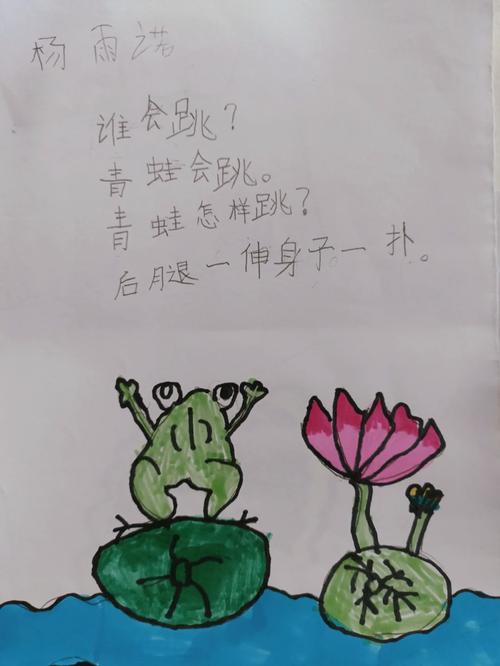 杨雨诺
谁会跳？
青蛙会跳。
青蛙怎样跳？
后腿一伸身子一扑。